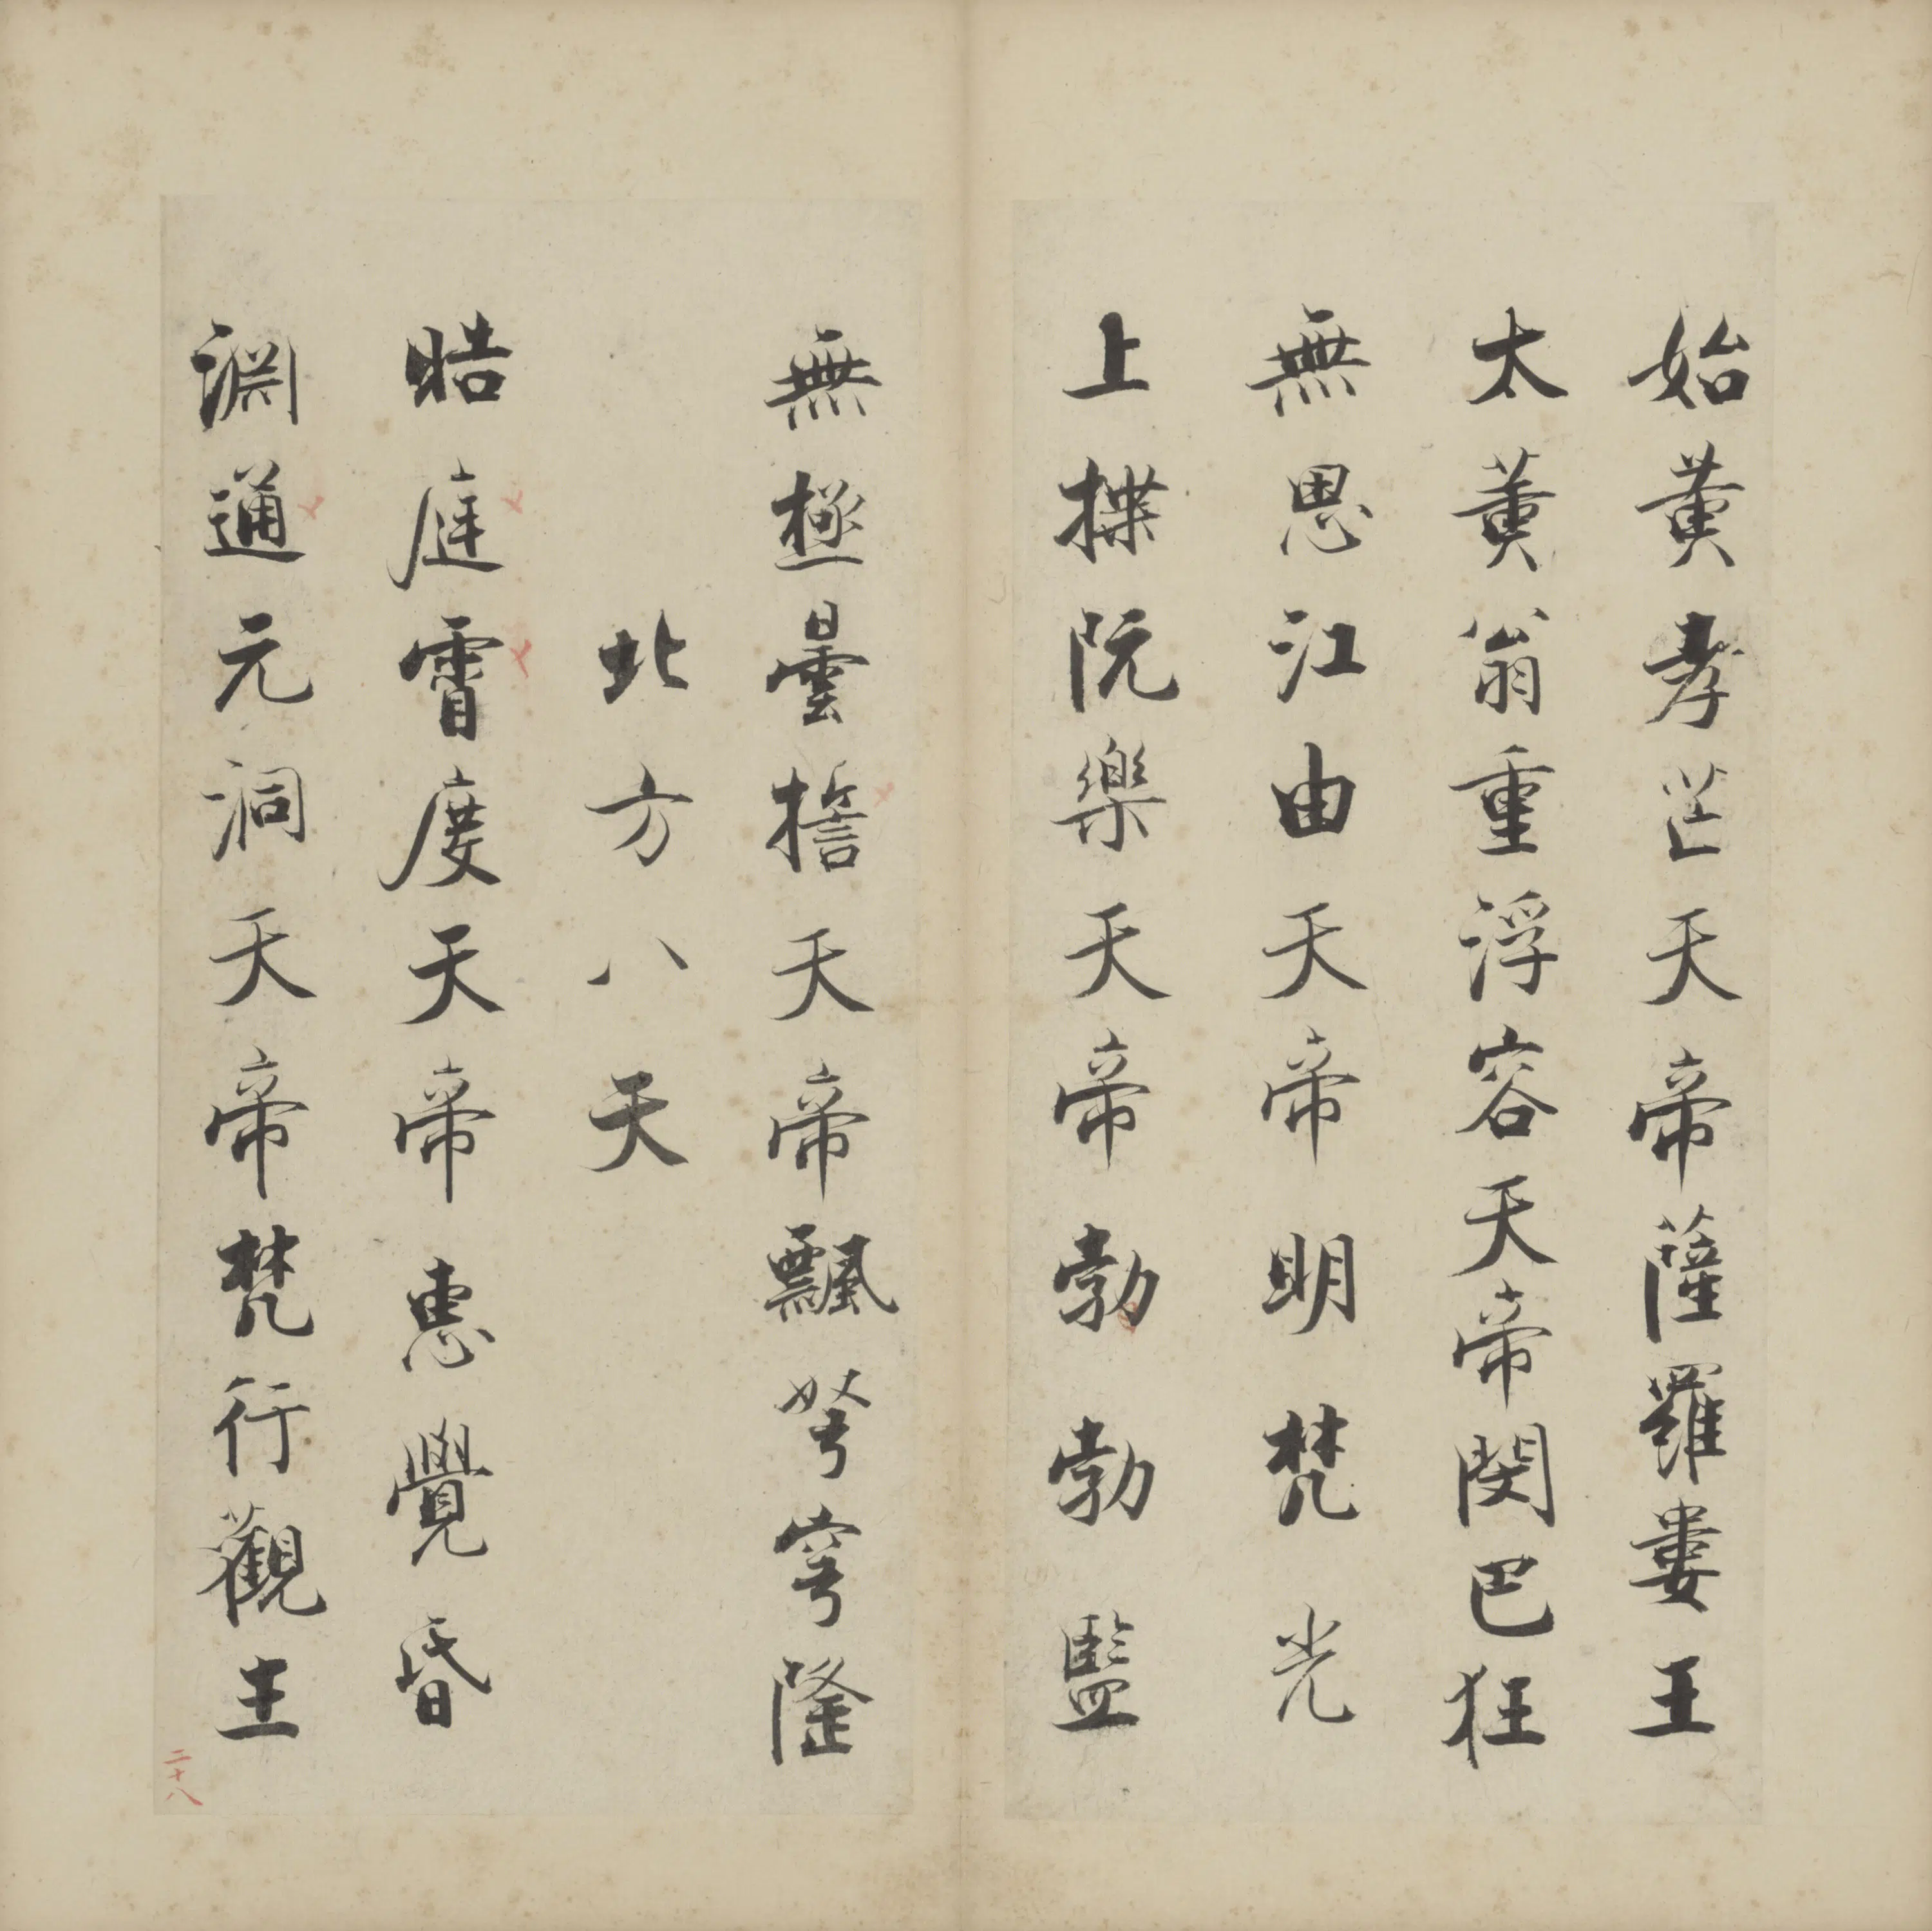 始黄孝芒天帝薩羅婁王
太黄翁重浮容天帝閔巴狂
無思江由天帝明梵光
上揲阮樂天帝勃勃監
無極曇誓天帝飄弩穹隆
北方八天
晧庭霄度天帝恵覺昏
淵通元洞天帝梵行觀主
二十八